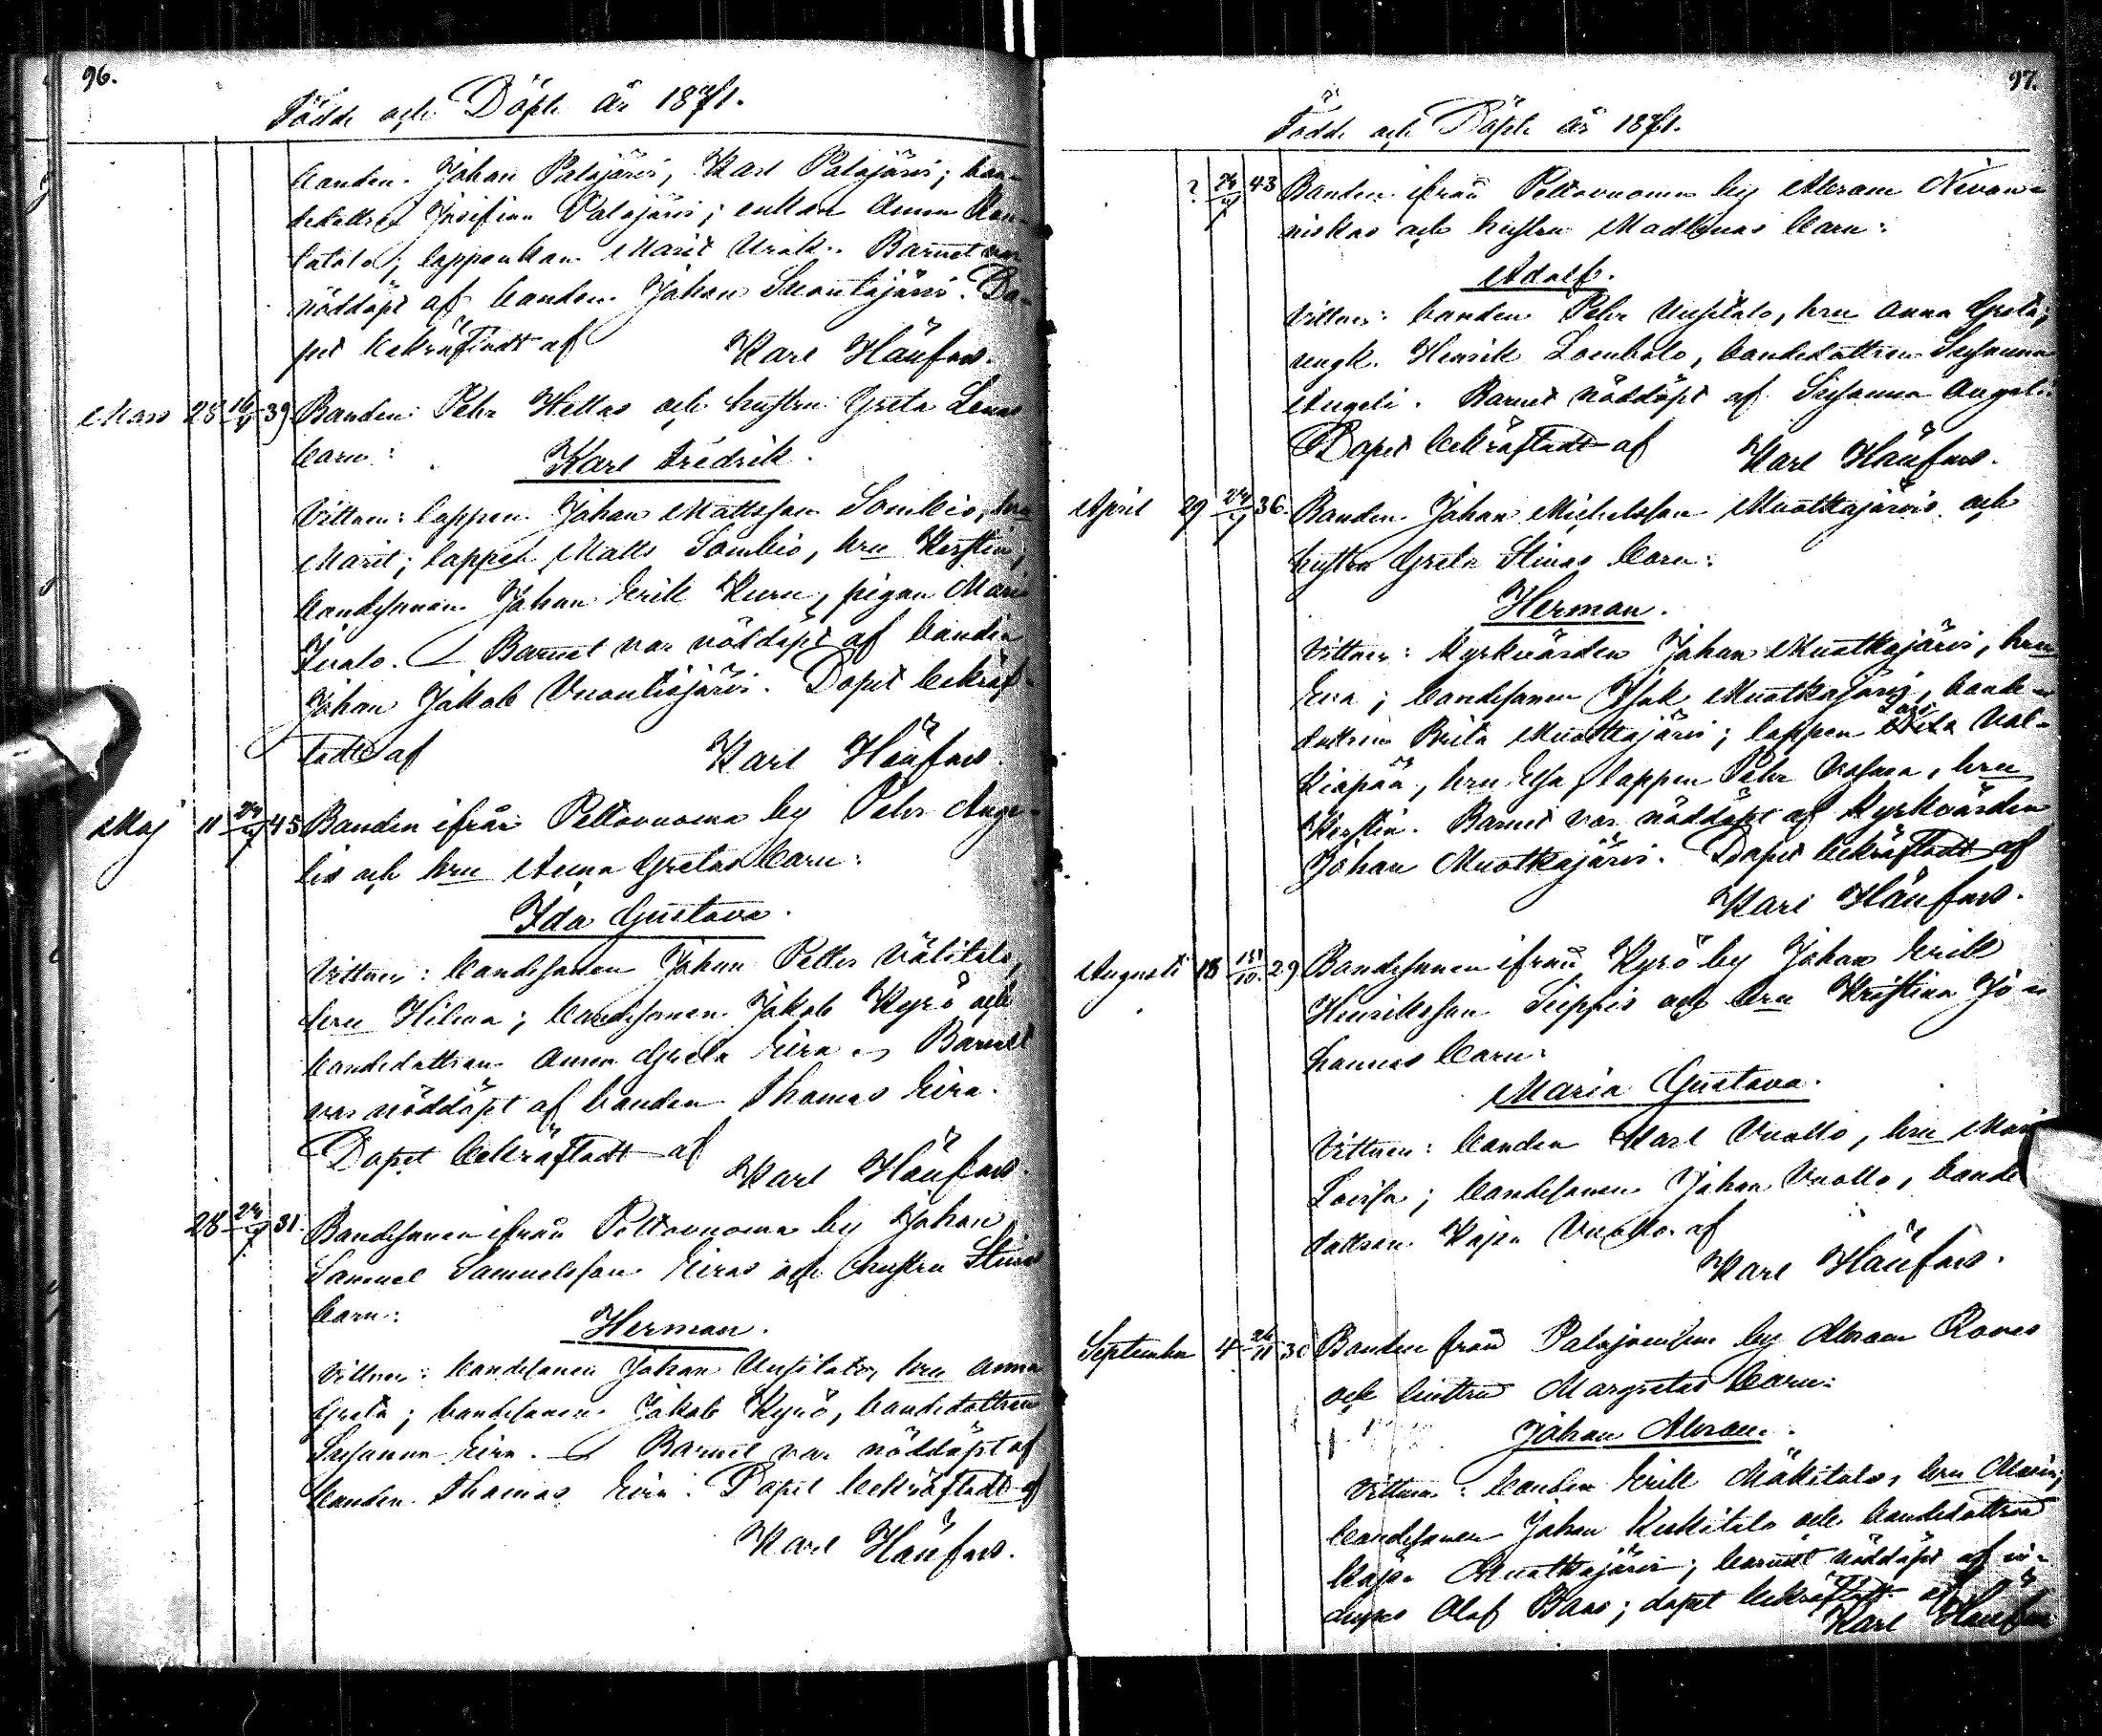 96.
Födde och Döpte år 1871.
bonden Johan Palojärvi, Karl Palojärvi; bon-
dedottren Josefina Palojärvi; enkan Anna
lappenkan Marit Barnet var
nöddöpt af bonden Johan Do-
pet bekräftadt af Karl Hänfors.
Mars 28 16/4 39 Bonden Pehr Hettas och hustru Greta Lenas
barn:
Karl Fredrik.
Vittnen: lappen Johan Mattsson Sombio, hru
Marit; lappen Matts Sombio, hru Kerstin;
bondesonen Johan Erik Kuru, pigan Maria
Barnet var nöddöpt af bonden
Johan Jakob Vuontisjärvi. Dopet bekräf-
tadt af Karl Hänfors.
Maj 11 24/7 45 Bonden ifrån Peltovuoma by Pehr Ange-
lis och hru Anna Gretas barn:
Ida Gustava.
Vittnen: bondesonen Johan Petter Välitalo,
hru Hilma; bondesonen Jakob Kyrö och
bondedottren Anna Greta Eira Barnet
var nöddöpt af bonden Thomas Eira.
Dopet bekräftadt af Karl Hänfors.
28 24/7 31. Bondesonen ifrån Peltovuoma by Johan
Samuel Samuelsson Eiras och hustru Stinas
barn:
Herman.
Vittnen: bondesonen Johan Uusitalo, hru Anna
Greta; bondesonen Jakob Kyrö, bondedottren
Susanna Eira. Barnet var nöddöpt af
bonden Thomas Eira. Dopet bekräftadt af
Karl Hänfors.
97.
Födde och Döpte år 1871.
? 24/7 43 Bonden ifrån Peltovuoma by Abram Nivan-
niskas och hustru Madlenas barn:
Adolf.
Vittnen: bonden Pehr Uusitalo, hru Anna Greta;
Henrik Lombolo, bondedottren Susanna
Angeli. Barnet nöddöpt af Susanna Angeli.
Dopet bekräftadt af Karl Hänfors.
April 29 24/7 36. Bonden Johan Michelsson Muotkajärvis och
hustru Greta Stinas barn:
Herman.
Vittnen: Kyrkvärden Johan Muotkajärvi, hru
Eva; bondesonen Isak Muotkajärvi, bonde-
dottren Brita Muotkajärvi; lappen Val-
kiapää, hru Elsa, lappen Pehr hru
Kerstin. Barnet var nöddöpt af Kyrkvärden
Johan Muotkajärvi. Dopet bekräftadt af
Karl Hänfors.
Augusti 18 29 Bondesonen ifrån Kyrö by Johan Erik
Henriksson Sieppis och hru Kristina Jo-
hannas barn:
Maria Gustava.
Vittnen: bonden Karl Vuollo, hru Mari
Lovisa; bondesonen Johan Vuollo, bonde
dottren Kajsa Vuollo. af
Karl Hänfors.
September 4 26/11 30 Bonden från Palojoensuu by Abram Rovas
och hustru Margretas barn:
Johan Abram.
Vittnen: bonden Erik Mäkitalo, hru Maria;
bondesonen Johan Keskitalo och bondedottren
Kajsa Muotkajärvi; barnet nöddöpt af in-
Olof Baas; dopet bekräftadt af
Karl Hänfors